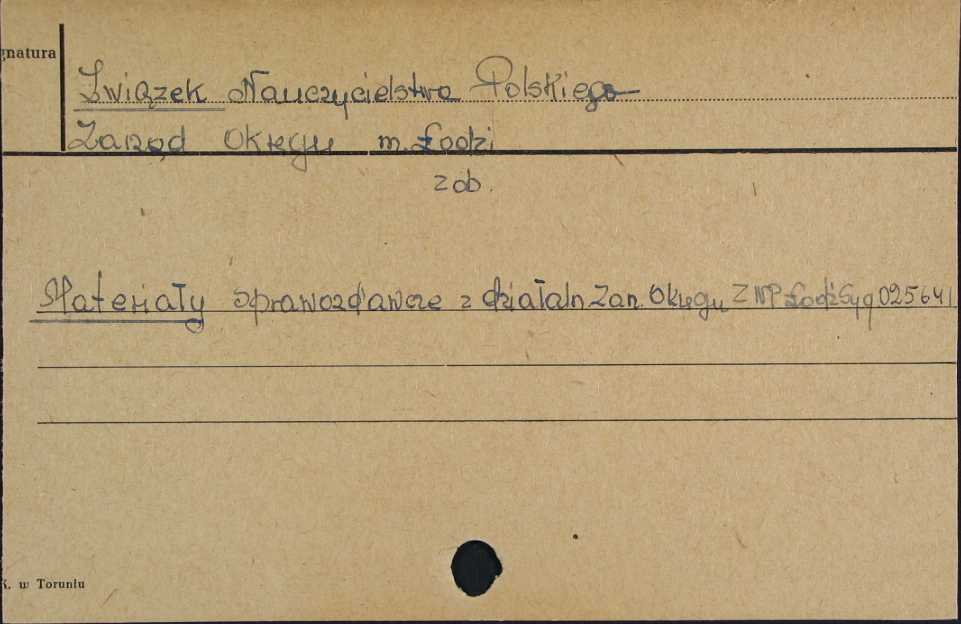 gnatura
Związek Nauczycielstwa Polskiego
Zarząd Okręgu m. Łodzi
zob.
Materiały sprawozdawcze z działaln. Zarz. Okręgu ZNP Łódź Syg 025641
K. w Toruniu